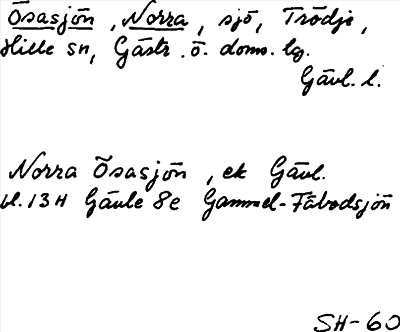 Ösasjön, Norra, sjö, Trödje,
Hille sn, Gästr. ö. doms. lg.
Gävl. l.
Norra Ösasjön, ek Gävl.
bl. 13H Gävle 8e Gammel-Fäbodsjön
SH-60